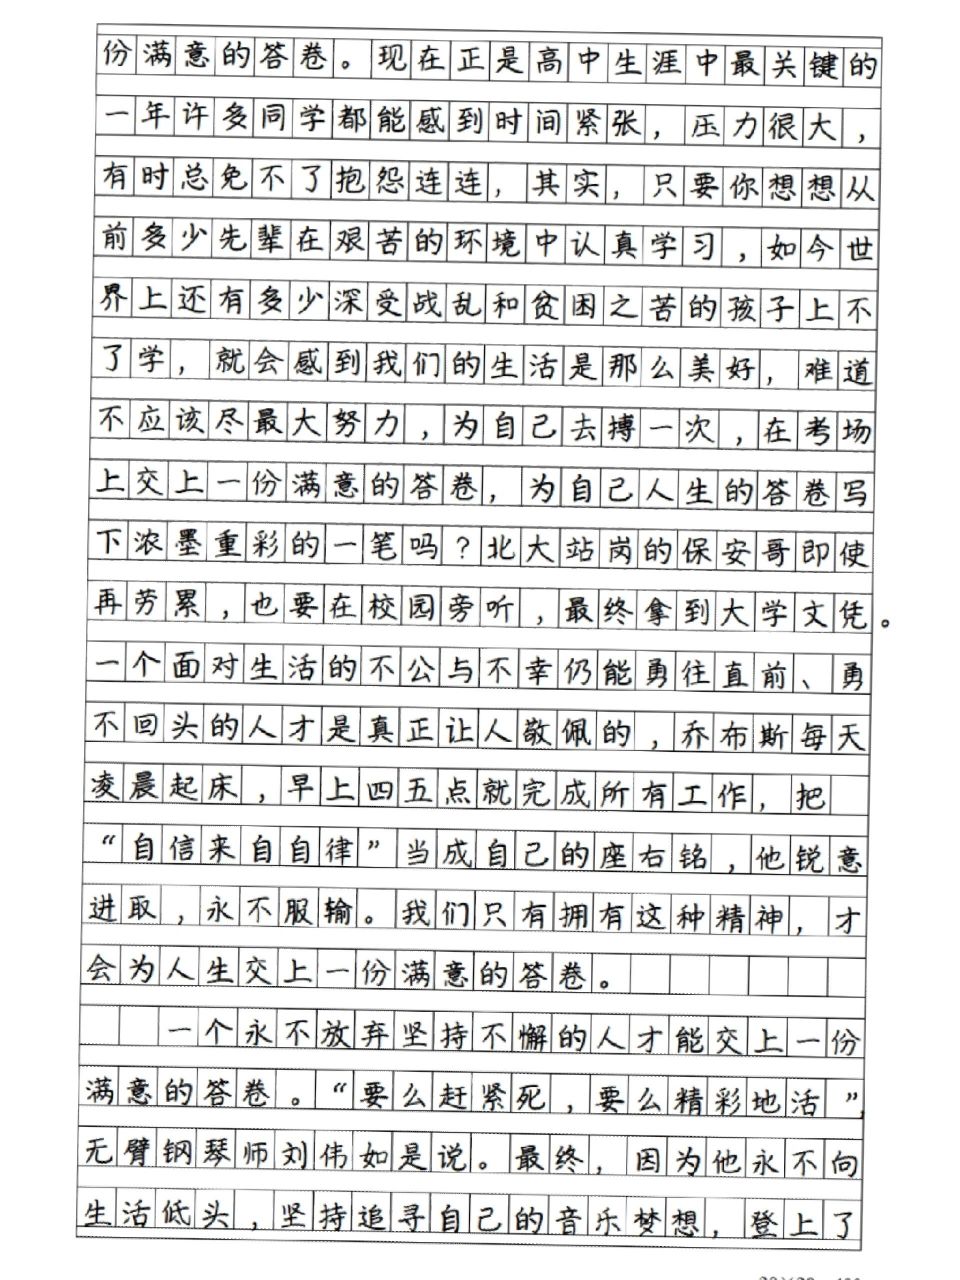 份满意的答卷。现在正是高中生涯中最关键的
一年许多同学都能感到时间紧张，压力很大，
有时总免不了抱怨连连，其实，只要你想想从
前多少先辈在艰苦的环境中认真学习，如今世
界上还有多少深受战乱和贫困之苦的孩子上不
了学，就会感到我们的生活是那么美好，难道
不应该尽最大努力，为自己去搏一次，在考场
上交上一份满意的答卷，为自己人生的答卷写
下浓墨重彩的一笔吗？北大站岗的保安哥即使
再劳累，也要在校园旁听，最终拿到大学文凭。
一个面对生活的不公与不幸仍能勇往直前、勇
不回头的人才是真正让人敬佩的，乔布斯每天
凌晨起床，早上四五点就完成所有工作，把
“自信来自自律”当成自己的座右铭，他锐意
进取，永不服输。我们只有拥有这种精神，才
会为人生交上一份满意的答卷。
一个永不放弃坚持不懈的人才能交上一份
满意的答卷。“要么赶紧死，要么精彩地活”，
无臂钢琴师刘伟如是说。最终，因为他永不向
生活低头，坚持追寻自己的音乐梦想，登上了